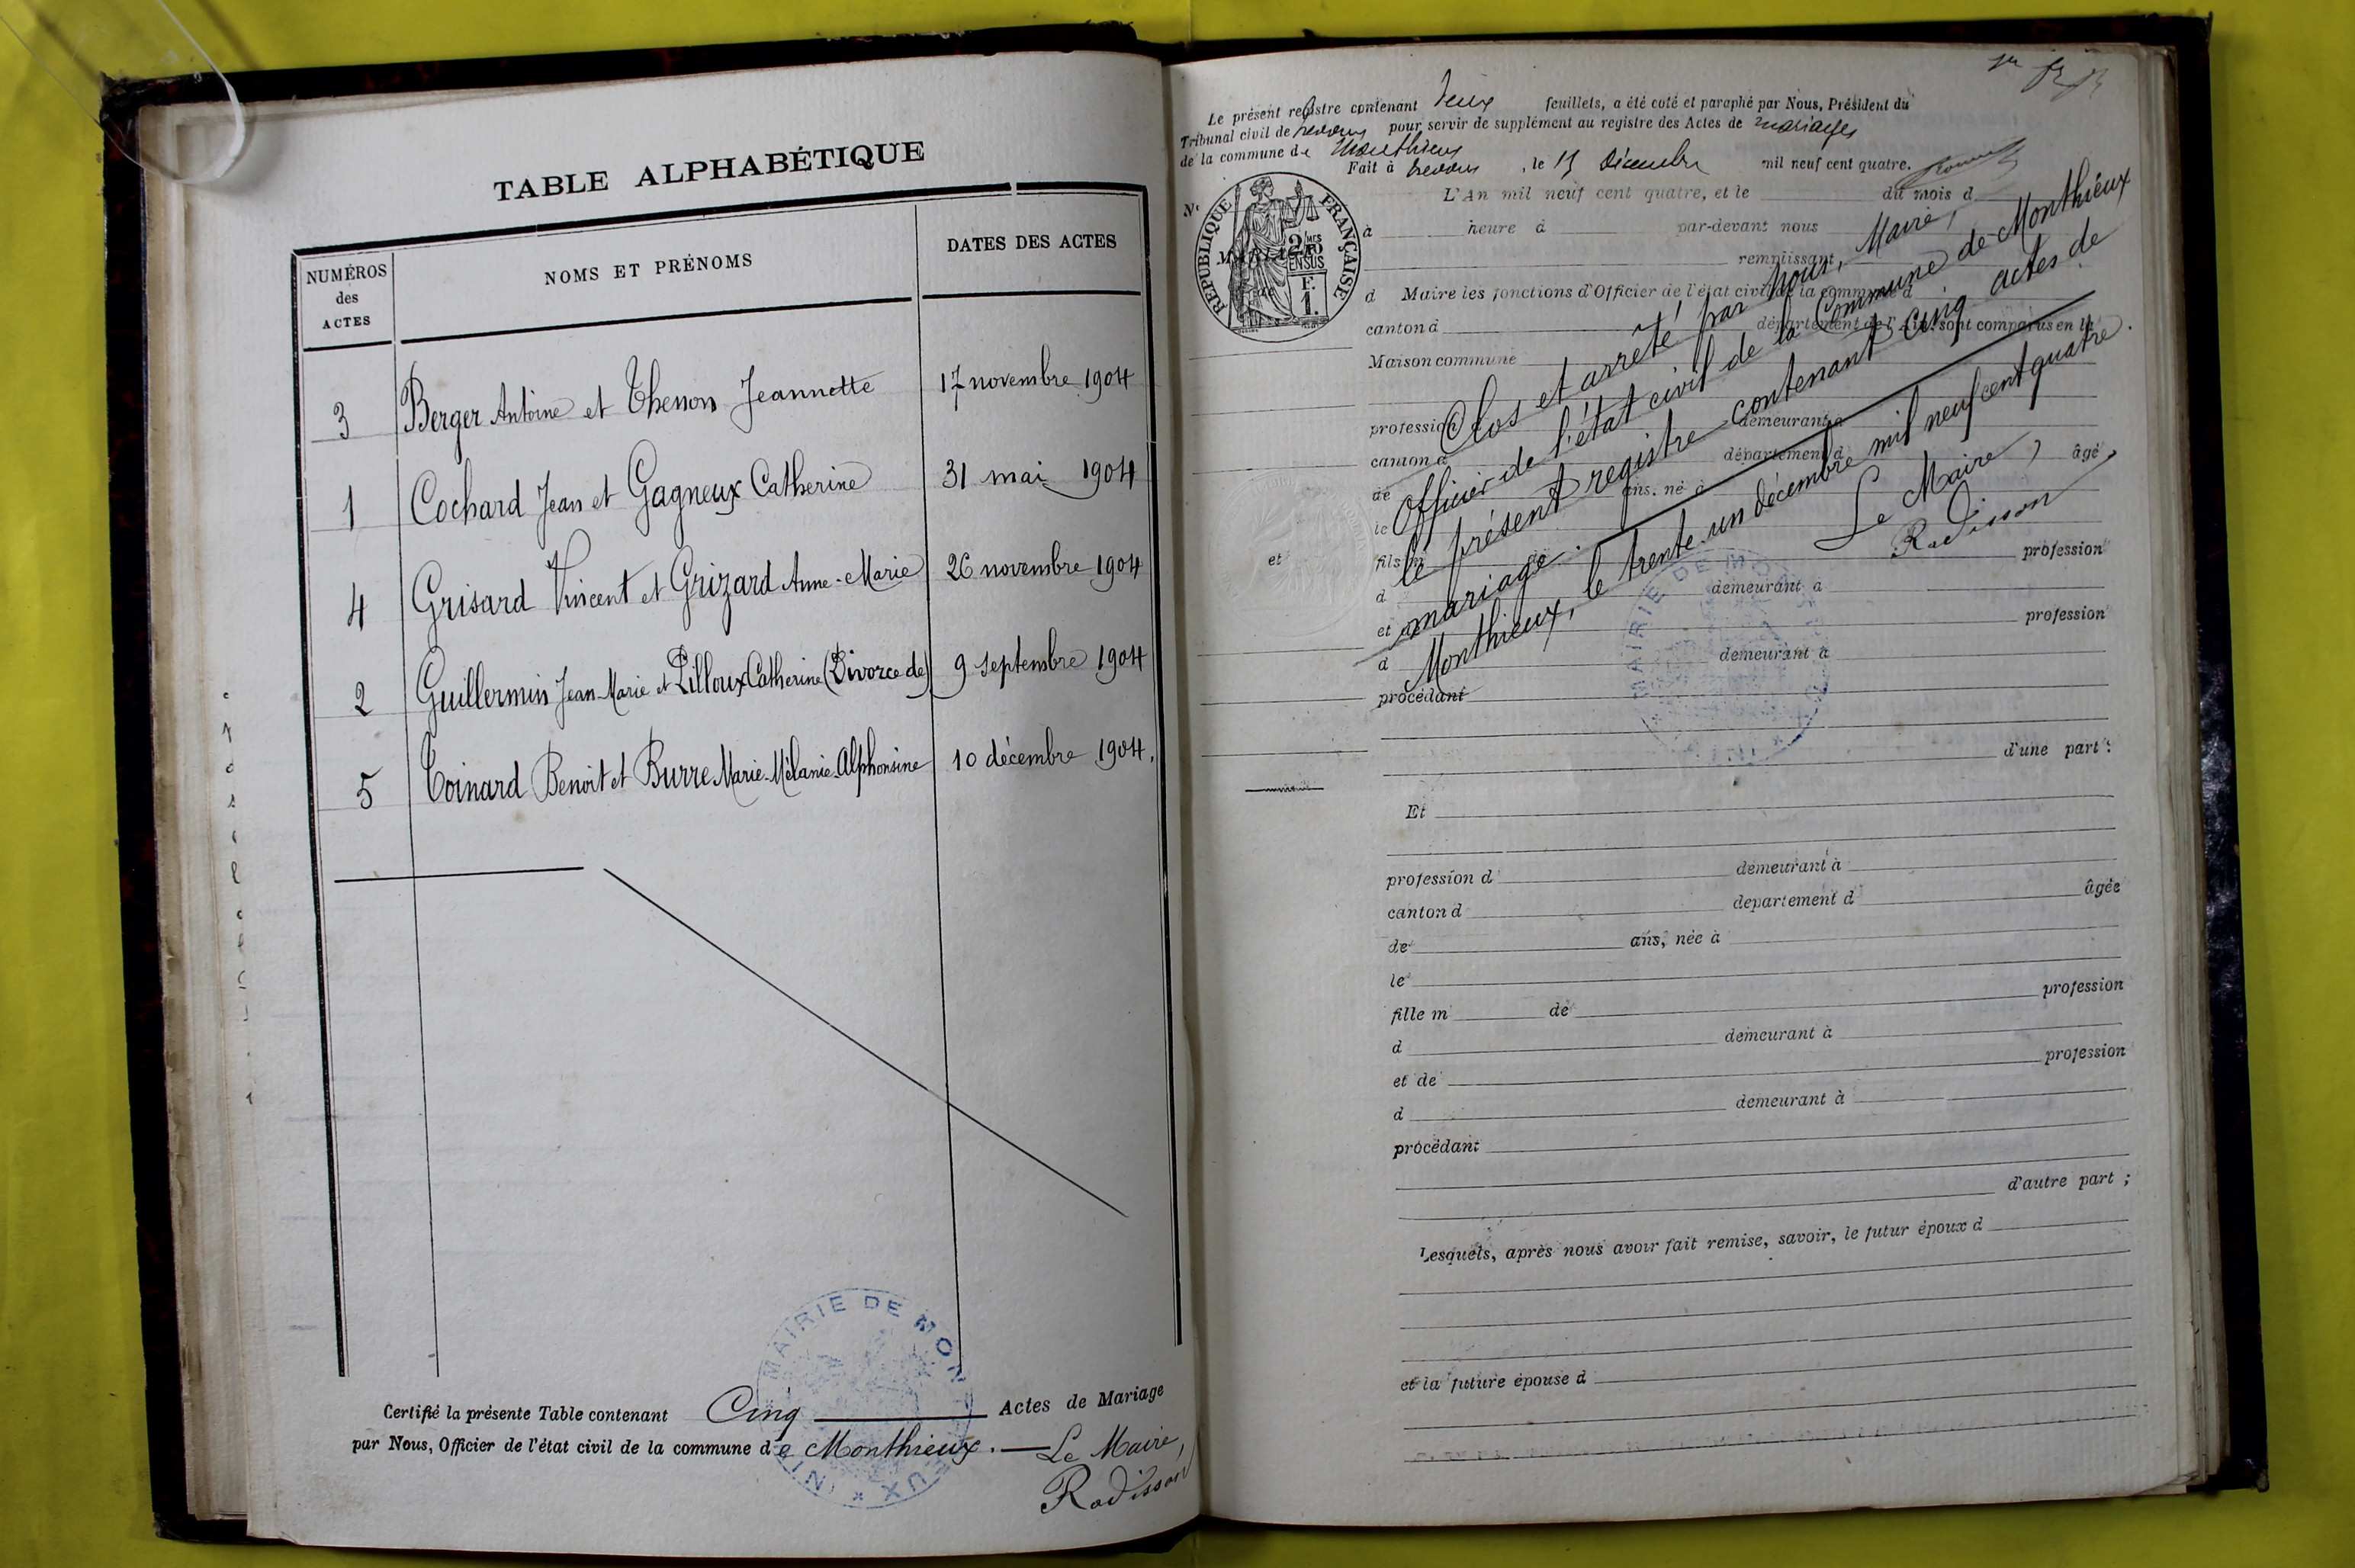 TABLE ALPHABÉTIQUE
NUMÉROS des ACTES
NOMS ET PRÉNOMS
DATES DES ACTES
3 Berger Antoine et Thenon Jeannette 17 novembre 1904
1 Cochard Jean et Gagneux Catherine 31 mai 1904
4 Grisard Vincent et Grizard Anne-Marie 26 novembre 1904
2 Guillermin Jean-Marie et Pilloux Catherine (Divorce de) 9 septembre 1904
5 Coinard Benoit et Burre Marie-Mélanie-Alphonsine 10 décembre 1904.
Certifié la présente Table contenant Cinq Actes de Mariage
par Nous, Officier de l'état civil de la commune de Monthieux. Le Maire,
Radisson
MAIRIE DE MONTHIEUX * (AIN)
Le présent registre contenant deux feuillets, a été coté et paraphé par Nous, Président du
Tribunal civil de Trévoux pour servir de supplément au registre des Actes de mariages
de la commune de Monthieux
Fait à Trévoux, le 15 Décembre mil neuf cent quatre.
RÉPUBLIQUE FRANÇAISE
2/10 MES EN SUS
F. 1.
N°
L'An mil neuf cent quatre, et le du mois d
à heure à par-devant nous
remplissant
d Maire les fonctions d'Officier de l'état civil de la commune d
canton d département de l'Ain, sont comparus en la
Maison commune
profession d demeurant à
canton d département d âgé
de ans, né à
le
et
fils m de profession
d demeurant à
et de profession
d demeurant à
procédant
d'une part;
Clos et arrêté par nous, Maire,
Officier de l'état civil de la Commune de Monthieux
le présent registre contenant cinq actes de
mariage.
Monthieux, le trente-un décembre mil neuf cent quatre.
Le Maire,
Radisson
MAIRIE DE MON
Et
profession d demeurant à
canton d département d âgée
de ans, née à
le
fille m de profession
d demeurant à
et de profession
d demeurant à
procédant
d'autre part;
Lesquels, après nous avoir fait remise, savoir, le futur époux d
et la future épouse d